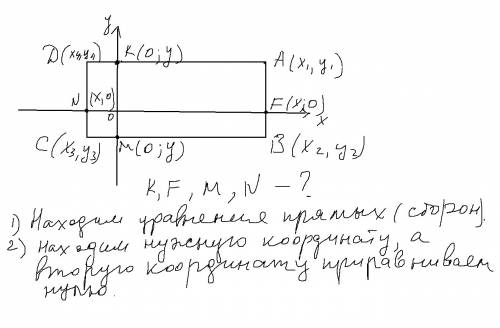 y
D(x4,y4) K(0;y) A(x1,y1)
N (x,0) 0 F(x;0) x
C(x3,y3) M(0;y) B(x2,y2)
K, F, M, N - ?
1) Находим уравнения прямых (сторон).
2) находим нужную координату, а
вторую координату приравниваем
нулю.